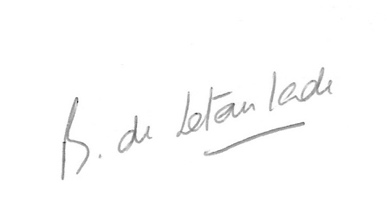 B. de Letoulade